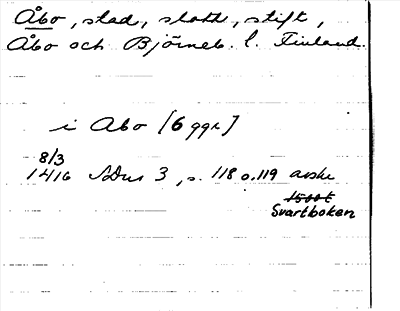 Åbo, stad, slott, stift,
Åbo och Björneb. l. Finland.
i Abo [6 ggr]
8/3
1416 SDns 3, s. 118 o. 119 avskr
1500t
Svartboken